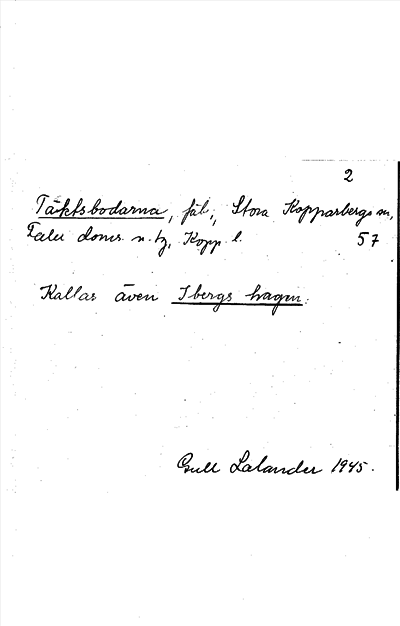 2
Täktsbodarna, fäb., Stora Kopparbergs sn,
Falu doms. n. tg, Kopp. l. 57
Kallas även Ibergs hagen.
Gull Lalander 1945.